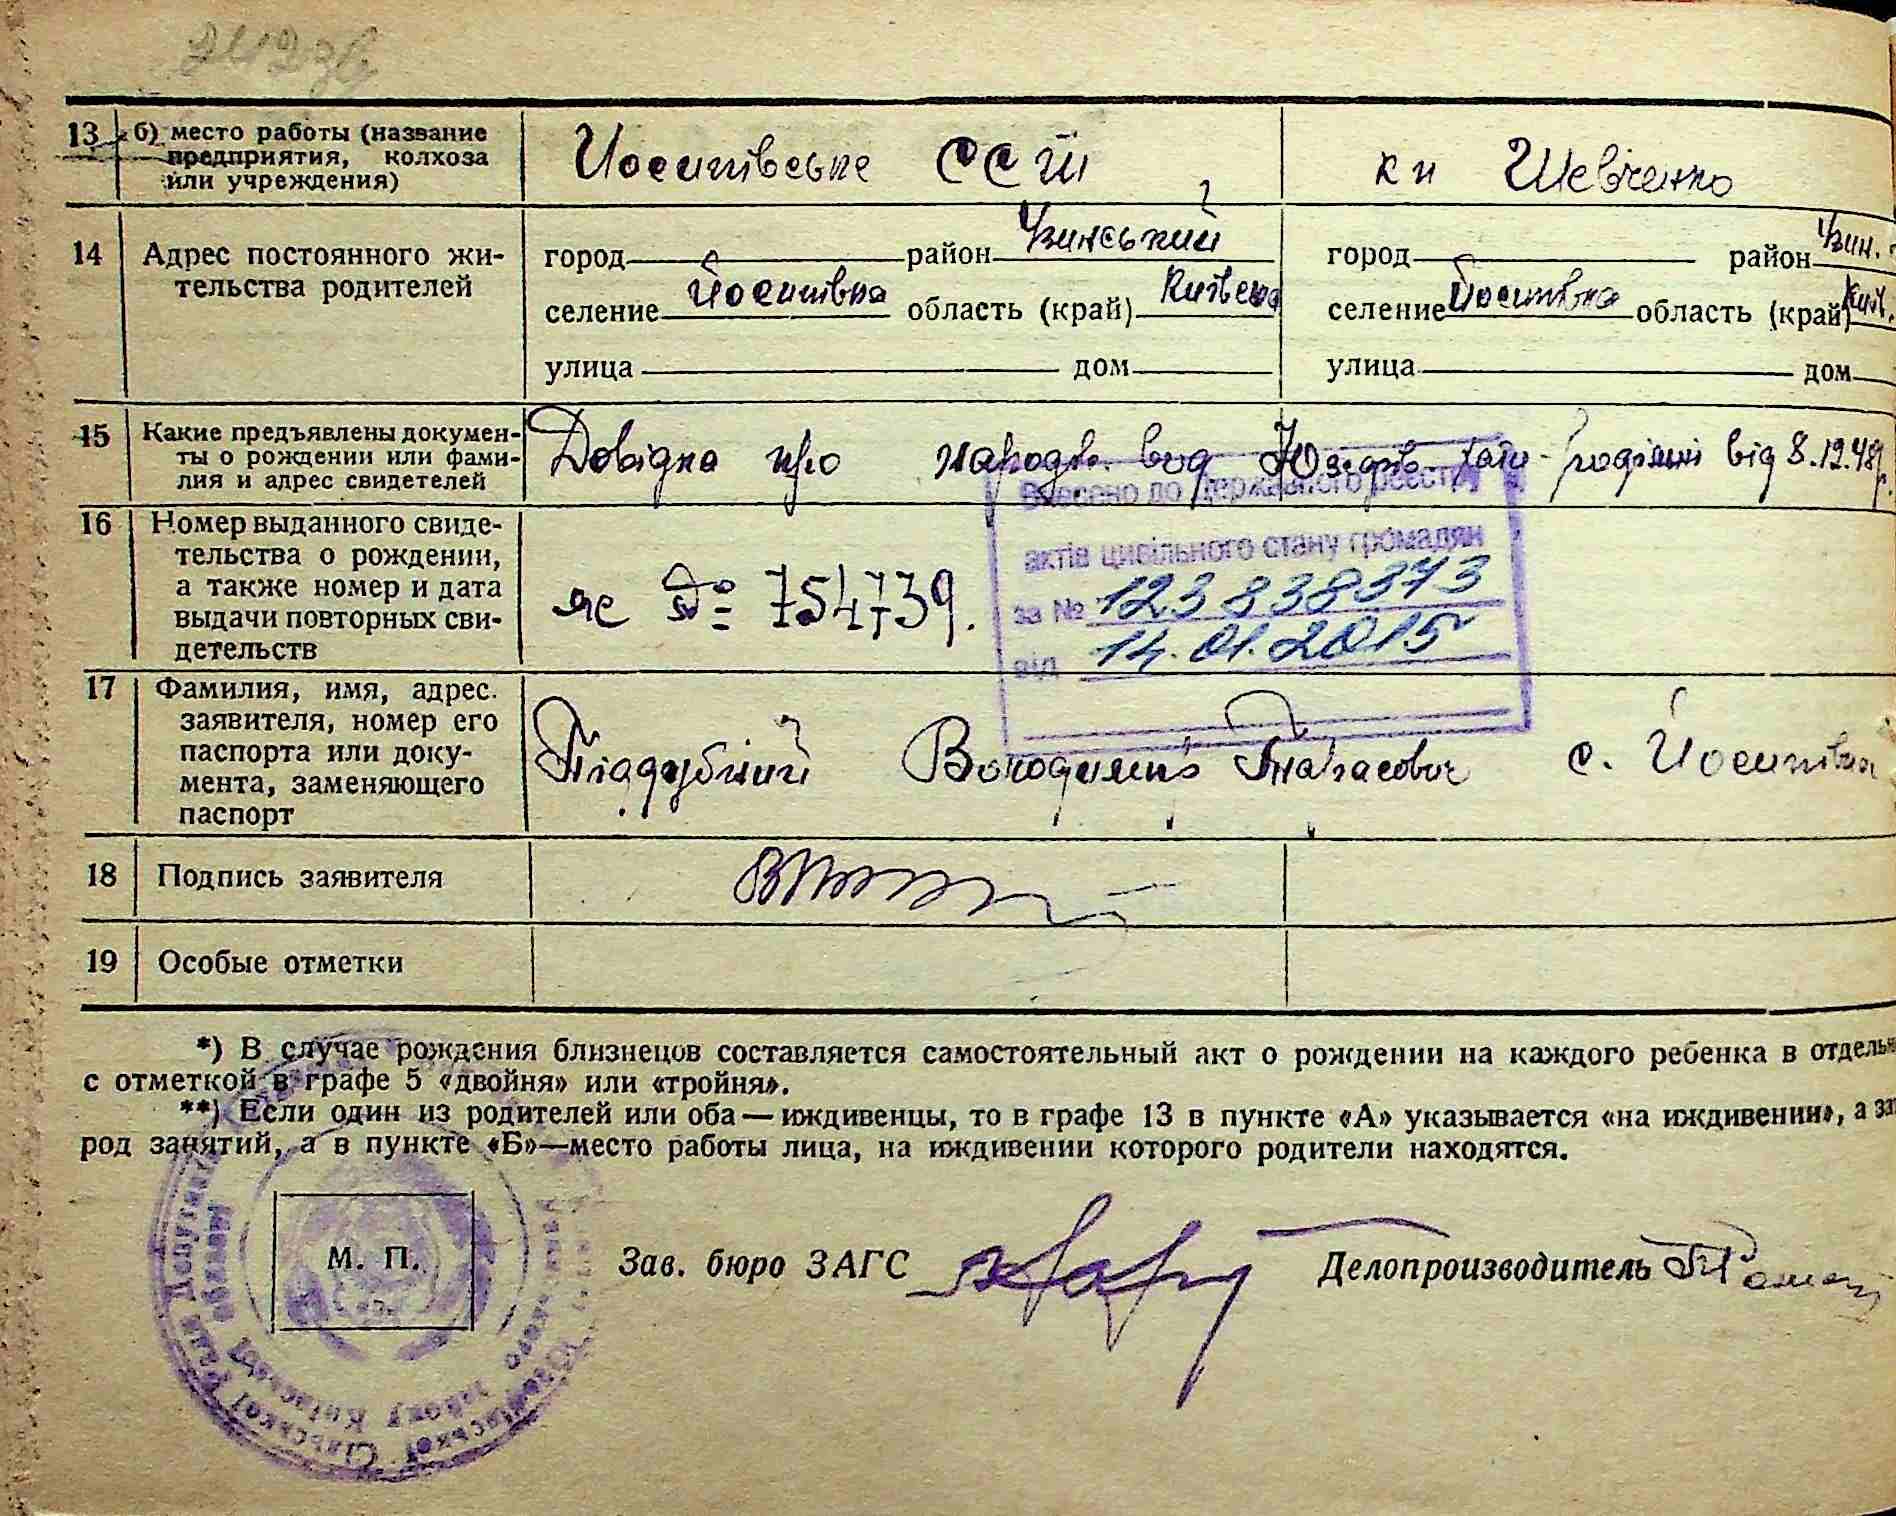 13 б) место работы (название
предприятия, колхоза
или учреждения)
Йосипівське ССТ
кп Шевченко
14 Адрес постоянного жи-
тельства родителей
город район Узинський
селение Йосипівка область (край) Київська
улица дом
город район Узин.
селение Йосипівка область (край) Київ.
улица дом
15 Какие предъявлены докумен-
ты о рождении или фами-
лия и адрес свидетелей
Довідка про народж. вид Юзефів. від 8.12.48р.
16 Номер выданного свиде-
тельства о рождении,
а также номер и дата
выдачи повторных сви-
детельств
яє № 754739.
Внесено до Державного реєстру
актів цивільного стану громадян
за № 123 838373
від 14.01.2015
17 Фамилия, имя, адрес
заявителя, номер его
паспорта или доку-
мента, заменяющего
паспорт
Піддубний Володимир Тарасович с. Йосипівка
18 Подпись заявителя
19 Особые отметки
*) В случае рождения близнецов составляется самостоятельный акт о рождении на каждого ребенка в отдельн
с отметкой в графе 5 «двойня» или «тройня».
**) Если один из родителей или оба — иждивенцы, то в графе 13 в пункте «А» указывается «на иждивении», а за
род занятий, а в пункте «Б»—место работы лица, на иждивении которого родители находятся.
М. П.
Зав. бюро ЗАГС
Делопроизводитель